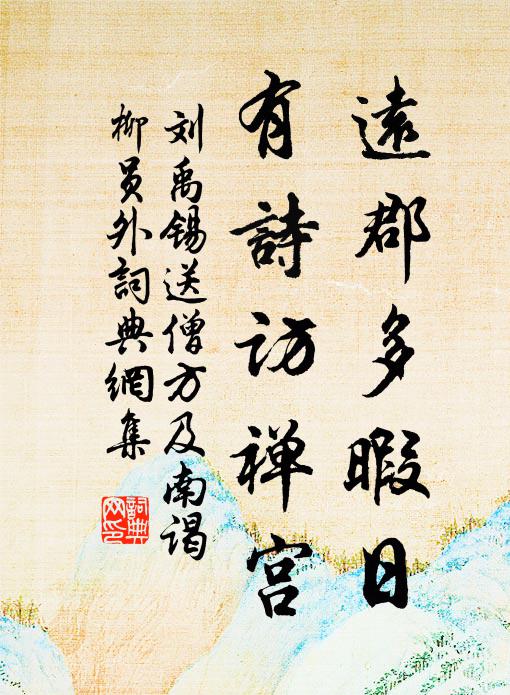 遠郡多暇日
有詩訪禅宫
刘禹锡送僧方及南谒
柳员外詞典網集
詞典网印